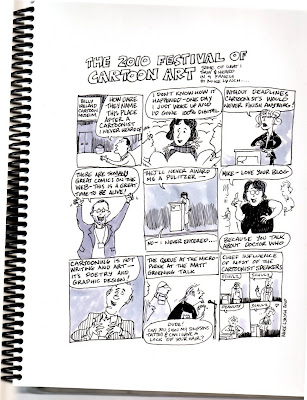 THE 2010 FESTIVAL OF
CARTOON ART
SOME OF WHAT I
SAW & HEARD
IN 9 PANELS
BY MIKE LYNCH
BILLY
IRELAND
CARTOON
MUSEUM
HOW DARE
THEY NAME
THIS PLACE
AFTER A
CARTOONIST
I NEVER HEARD OF!
I DON'T KNOW HOW IT
HAPPENED - ONE DAY
I JUST WOKE UP AND
I'D GONE 100% DIGITAL.
WITHOUT DEADLINES
CARTOONISTS WOULD
NEVER FINISH ANYTHING!
THERE ARE SO MANY
GREAT COMICS ON THE
WEB - THIS IS A GREAT
TIME TO BE ALIVE!
THEY'LL NEVER AWARD
ME A PULITZER
NO - I NEVER ENTERED...
MIKE - LOVE YOUR BLOG
BECAUSE YOU TALK
ABOUT DOCTOR WHO
CARTOONING IS NOT
WRITING AND ART -
IT'S POETRY AND
GRAPHIC DESIGN!
THE QUEUE AT THE MICRO-
PHONE AT THE MATT
GROENING TALK
DUDE!
CAN YOU SIGN MY SIMPSONS
TATTOO & CAN I HAVE A
LOCK OF YOUR HAIR?
CHIEF INFLUENCE
OF MOST OF THE
CARTOONIST SPEAKERS